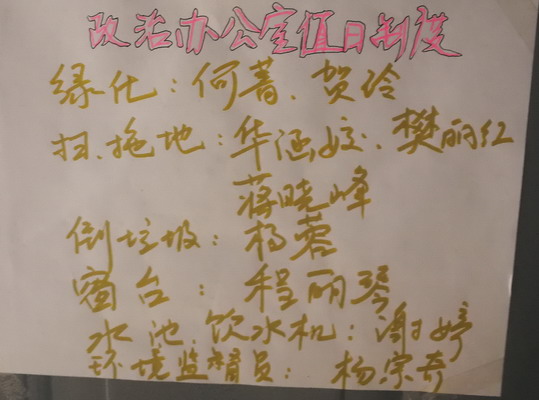 政治办公室值日制度
绿化：何菁、贺玲
扫、拖地：华涵姣、樊丽红
蒋晓峰
倒垃圾：杨蓉
窗台：程丽琴
水池、饮水机：谢婷
环境监督员：杨宗奇